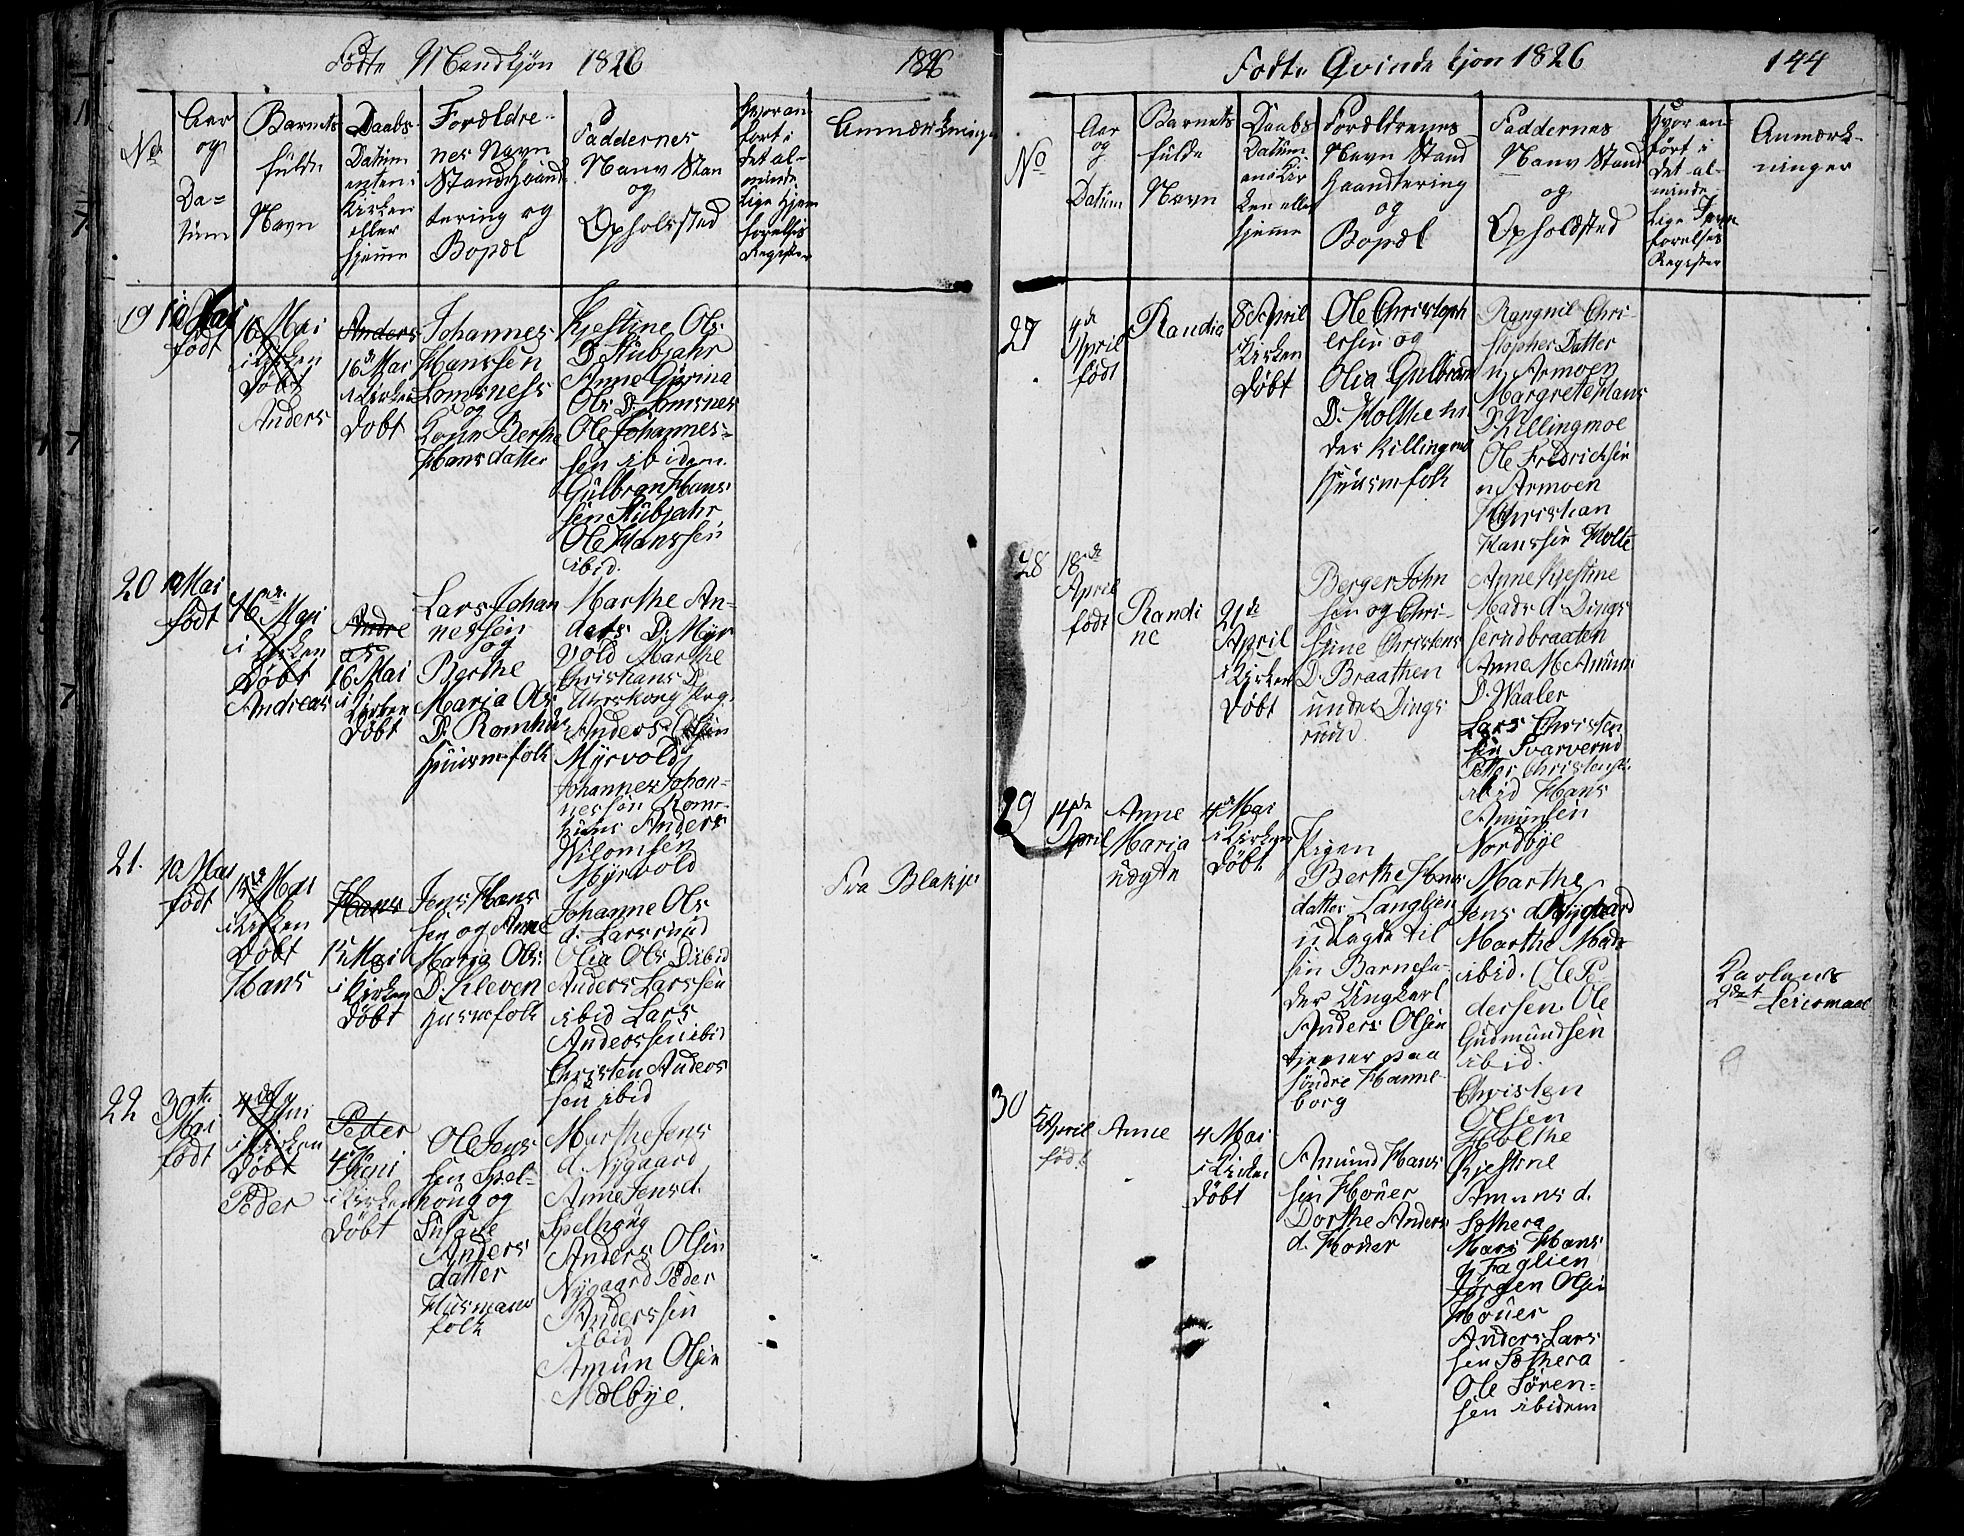 Fødte Mandkjøn 1826
1826
No
Aar
og
Da=
tum
Barnets
fulde
Navn
Daabs
Datum
enten i
Kirken
eller
hjeme
Forældre-
nes Navn
Stand Haand
tering og
Bopæl
Faddernes
Navn Stan
og
Opholdsted
Hvor an
fört i
det al-
minde
lige Hjem
förelsis
Register
Anmærkninger
19
10 Mai
födt
16 Mai
i Kirken
Döbt
Anders
Anders
16 Mai
i Kirken
Döbt
Johannes
Hanssen
Lomsness
og
Kone Berthe
Hansdatter
Kjestine Ols
D. Stubjahr
Anne Gurina
Ols D. Lomsnes
Ole Johannes=
sen ibidem
Gulbran Hans
sen Stubjahr
Ole Hanssen
ibid.
20
Mai
født
16 Mai
i Kirken
Døbt
Andreas
Andre
as
16 Mai
i Kirken
Døbt
Lars Johan
nessen
og
Berthe
Maria Ols
D. Romhus
Huusmfolk
Marthe An-
ders D. Myr
vold Marthe
Christians D.
Urskoug Prg.
Anders Olsen
Myrvold
Johannes Johan-
nessen Rom-
huus Anders
Myrvold
21.
10 Mai
født
15 Mai
i Kirken
Døbt
Hans
Hans
15 Mai
i Kirken
Døbt
Jens Hans
sen og Anne
Maria Ols
D. Kleven
Husmfolk
Johanne Ols
d. Larsrud
Olia Ols D ibid
Anders Larssen
ibid Lars
Anderssen ibid
Christen Anders
sen ibid
Fra Blakjer
22
30te
Mai
født
4de Juni
i Kirken
Døbt
Peder
Peder
4de
Juni
i Kirken
Døbt
Ole Jens
sen Spel-
houg og
Susane
Anders
datter
Husmans
folk
Marthe Jens
d. Nygaard
Anne Jens d.
Spelhoug
Anders Olsen
Nygaard Peder
Anderssen
ibid
Amun Olsen
Mælbye.
Fødte Qvindekjøn 1826
144
No
Aar
og
Datum
Barnets
fulde
Navn
Daabs
Datum
en i Kir
ken eller
hjeme
Forældrenes
Navn Stand
Haandtering
og
Bopæl
Faddernes
Navn Stand
og
Opholdsted
Hvor an-
fört i
det al-
minde
lige Jevn
förelses
Register
Anmærk-
ninger
27
4de
April
født
Randia
8 April
i Kirken
Døbt
Ole Christoph
ersen og
Olia Gulbran
D. Holthe un
der Killingmo
Huusmfolk
Rangnil Chri-
stopher Datter
n. Armoen
Margrete Hans
D. Killingmoe
Ole Fredrichsen
n. Armoen
Christian
Hanssen Holte
28
18de
April
født
Randi
ne
21de
April
i Kirken
Døbt
Berger John
sen og Chri-
stine Christens
D. Braathen
under Dings
ruud
Anne Kjestine
Mads d. Dings
serudbraaten
Anne M. Amuns
D. Waaler
Lars Christen
sen Svarverud
Petter Christens.
ibid Hans
Amunsen
Nordbye
29
14de
April
Anne
Maria
uægte
4 Mai
i Kirken
Døbt
Pigen
Berthe Hans
datter Langlien
udlagde til
sin Barnefa-
der Ungkarl
Anders Olsen
tjener paa
søndre Hanne-
borg
Marthe
Jens d. Nygaard
Marthe Mads
ibid. Ole Pe-
dersen. Ole
Gudmundsen
ibid.
Christen
Olsen
Holthe
Karlens
2det Leiermaal
30
5 April
født
Anne
4 Mai
i Kirken
Døbt
Amund Hans
sen Houer
Dorthe Anders
d. Houer
Kjestine
Amuns d.
Søthera
Mari Hans
d. Faglien
Jørgen Olsen
Houer
Anders Lars
sen Søthera
Ole Sören=
sen ibidem